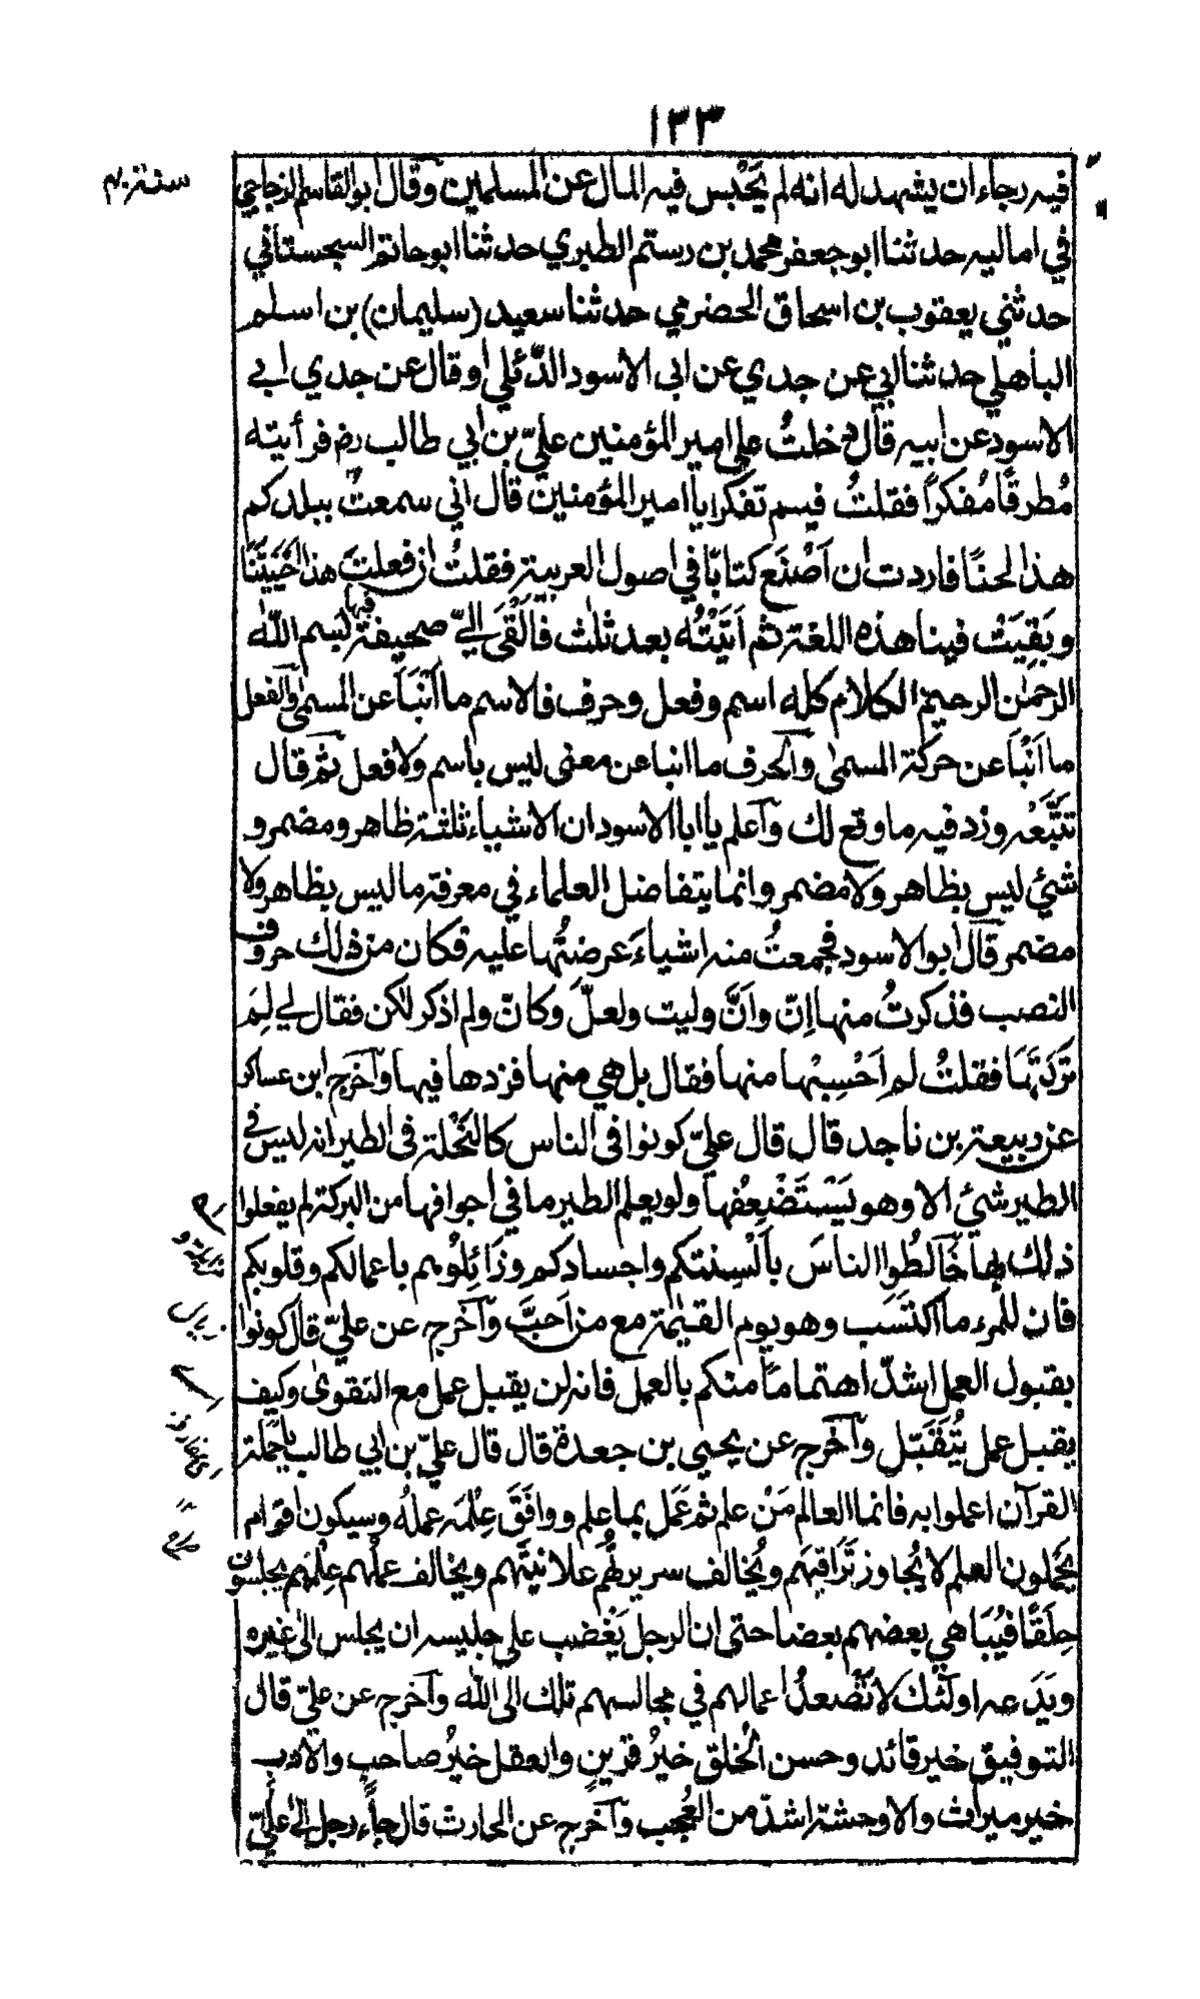 ١٣٣
سنة ٤٠
فيه رجاء ان يشهد له انه لم يَحْبِس فيه المال عن المسلمين وقال ابو القاسم الزجاجي
في اماليه حدثنا ابو جعفر محمد بن رستم الطبري حدثنا ابو حاتم السجستاني
حدثني يعقوب بن اسحاق الحضرمي حدثنا سعيد (سليمان) بن اسلم
الباهلي حدثنا ابي عن جدي عن ابى الاسود الدّئلي او قال عن جدي ابي
الاسود عن ابيه قال دخلتُ على امير المؤمنين عليّ بن ابي طالب رض فرأيته
مُطرقًا مُفكرًا فقلتُ فيم تفكر يا امير المؤمنين قال اني سمعتُ ببلدكم
هذا لحنًا فاردت ان اَصْنَع كتابًا في اصول العربية فقلتُ ان فعلتَ هذا اَحْيَيْتَنَا
وبَقِيَتْ فينا هذه اللغة ثم اَتَيْتُه بعد ثلٰث فاَلْقَى اليّ صحيفة فيها بسم الله
الرحمٰن الرحيم الكلام كله اسم وفعل وحرف فالاسم ما اَنْبَأَ عن المسمىٰ والفعل
ما اَنْبَأَ عن حركة المسمىٰ والحرف ما انبا عن معنى ليس باسم ولا فعل ثم قال
تَتَبَّعْه وزد فيه ما وقع لك واعلم يا ابا الاسود ان الاشياء ثلثة ظاهر ومضمر و
شئ ليس بظاهر ولا مضمر وانما يتفاضل العلماء في معرفة ما ليس بظاهر ولا
مضمر قال ابو الاسود فجمعتُ منه اشياءَ عرضتُها عليه فكان من ذلك حروف
النصب فذكرتُ منها اِنّ واَنَّ وليت ولعلّ وكانّ ولم اذكر لكن فقال لي لِمَ
تَرَكْتَهَا فقلتُ لم اَحْسِبْها منها فقال بل هي منها فزدها فيها واخرج ابن عساكر
عن ربيعة بن ناجد قال قال عليّ كونوا فى الناس كالنَّحْلة فى الطير انه ليس في
الطير شئ الا وهو يَسْتَضْعِفُها ولو يعلم الطير ما في اجوافها من البركة لم يفعلوا
ذلك بها خَالِطُوا الناسَ باَلْسِنتكم واجسادكم وزَائِلُوهم باعمالكم وقلوبكم
فان للمرء ما اكتسَب وهو يوم القيٰمة مع من اَحبَّ واخرج عن عليّ قال كونوا
بقبول العمل اشدّ اهتمامًا منكم بالعمل فانه لن يقبل عمل مع التقوىٰ وكيف
يقبل عمل يُتَقَبّل واخرج عن يحيى بن جعدة قال قال عليّ بن ابي طالب يا حَمَلة
القرآن اعملوا به فانما العالم مَنْ علم ثم عَمل بما علم ووافَقَ عِلْمَه عملُه وسيكون اقوام
يَحْملون العلم لا يُجاوز تَرَاقِيَهم وتُخالف سريرتُهم علانيتَهم ويخالف عملُهم عِلْمَهم يجلسون
حِلَقًا فيُبَاهي بعضهم بعضا حتى ان الرجل يَغْضب على جليسه ان يجلس الىٰ غيره
ويَدَعه اولٰئك لا تَصْعدُ اعمالهم في مجالسهم تلك الى الله واخرج عن عليّ قال
التوفيق خير قائد وحسن الخلق خيرُ قرينٍ والعقل خيرُ صاحب والادب
خير ميراث ولا وحشة اشدّ من العُجب واخرج عن الحارث قال جاء رجل الىٰ عليّ